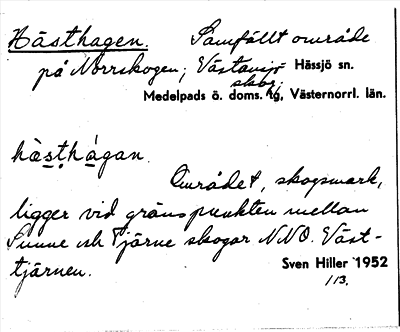 Hästhagen. Samfällt område
på Norrskogen; Västansjö- Hässjö sn.
skog;
Medelpads ö. doms. tg, Västernorrl. län.
hæ̀st̥hágan.
Området, skogsmark,
ligger vid gränspunkten mellan
Sunne och Tjärne skogar NNO. Väst-
tjärnen. Sven Hiller 1952
113.